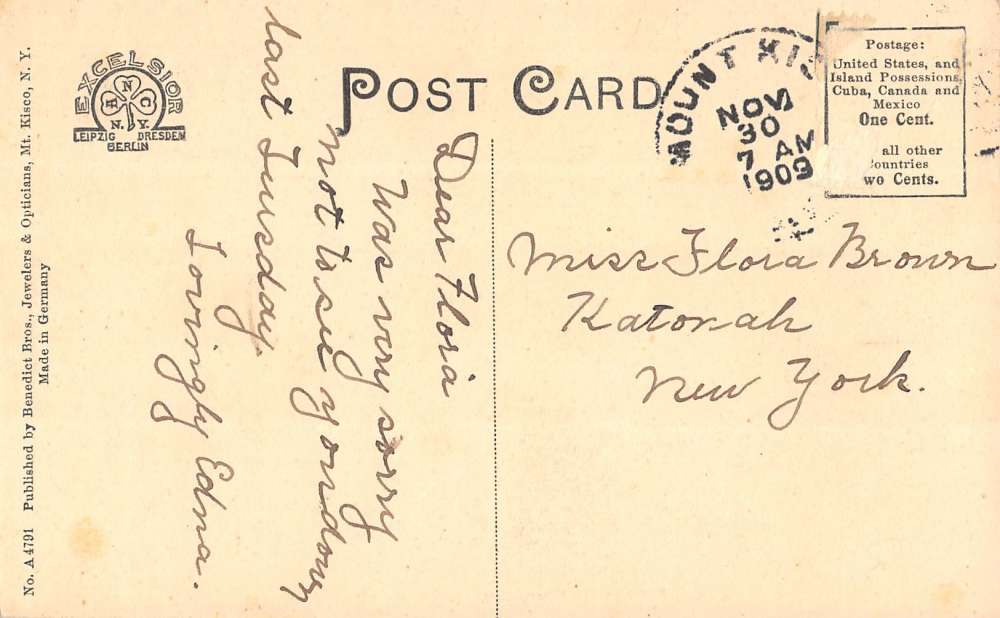 EXCELSIOR
A N C
N. Y.
LEIPZIG DRESDEN
BERLIN
POST CARD
MOUNT KIS
NOV
30
7 AM
1909
Postage:
United States, and
Island Possessions
Cuba, Canada and
Mexico
One Cent.
all other
ountries
wo Cents.
Dear Flora
Was very sorry
not to see you down
last Tuesday.
Lovingly Edna.
Miss Flora Brown
Katonah
New York.
No. A 4791 Published by Benedict Bros., Jewelers & Opticians, Mt. Kisco, N. Y.
Made in Germany